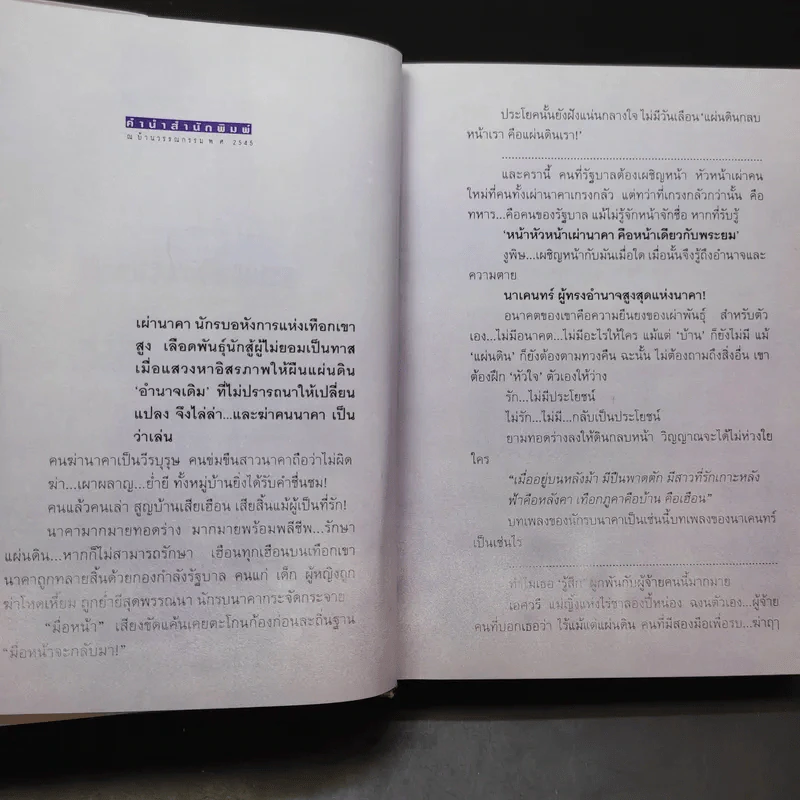 คำนำสำนักพิมพ์
ณ บ้านวรรณกรรม พ.ศ. 2545
เผ่านาคา นักรบอหังการแห่งเทือกเขา
สูง เลือดพันธุ์นักสู้ผู้ไม่ยอมเป็นทาส
เมื่อแสวงหาอิสรภาพให้ผืนแผ่นดิน
‘อำนาจเดิม’ ที่ไม่ปรารถนาให้เปลี่ยน
แปลง จึงไล่ล่า...และฆ่าคนนาคา เป็น
ว่าเล่น
คนฆ่านาคาเป็นวีรบุรุษ คนข่มขืนสาวนาคาถือว่าไม่ผิด
ฆ่า...เผาผลาญ...ย่ำยี ทั้งหมู่บ้านยิ่งได้รับคำชื่นชม!
คนแล้วคนเล่า สูญบ้านเสียเฮือน เสียสิ้นแม้ผู้เป็นที่รัก!
นาคามากมายทอดร่าง มากมายพร้อมพลีชีพ...รักษา
แผ่นดิน...หากก็ไม่สามารถรักษา เฮือนทุกเฮือนบนเทือกเขา
นาคาถูกทลายสิ้นด้วยกองกำลังรัฐบาล คนแก่ เด็ก ผู้หญิงถูก
ฆ่าโหดเหี้ยม ถูกย่ำยีสุดพรรณนา นักรบนาคากระจัดกระจาย
“มื่อหน้า” เสียงขัดแค้นเคยตะโกนก้องก่อนละถิ่นฐาน
“มื่อหน้าจะกลับมา!”
ประโยคนั้นยังฝังแน่นกลางใจ ไม่มีวันเลือน ‘แผ่นดินกลบ
หน้าเรา คือแผ่นดินเรา!’
และครานี้ คนที่รัฐบาลต้องเผชิญหน้า หัวหน้าเผ่าคน
ใหม่ที่คนทั้งเผ่านาคาเกรงกลัว แต่ทว่าที่เกรงกลัวกว่านั้น คือ
ทหาร...คือคนของรัฐบาล แม้ไม่รู้จักหน้าจักชื่อ หากที่รับรู้
‘หน้าหัวหน้าเผ่านาคา คือหน้าเดียวกับพระยม’
งูพิษ...เผชิญหน้ากับมันเมื่อใด เมื่อนั้นจึงรู้ถึงอำนาจและ
ความตาย
นาเคนทร์ ผู้ทรงอำนาจสูงสุดแห่งนาคา!
อนาคตของเขาคือความยืนยงของเผ่าพันธุ์ สำหรับตัว
เอง...ไม่มีอนาคต...ไม่มีอะไรให้ใคร แม้แต่ ‘บ้าน’ ก็ยังไม่มี แม้
‘แผ่นดิน’ ก็ยังต้องตามทวงคืน ฉะนั้น ไม่ต้องถามถึงสิ่งอื่น เขา
ต้องฝึก ‘หัวใจ’ ตัวเองให้ว่าง
รัก...ไม่มีประโยชน์
ไม่รัก...ไม่มี...กลับเป็นประโยชน์
ยามทอดร่างลงให้ดินกลบหน้า วิญญาณจะได้ไม่ห่วงใย
ใคร
“เมื่ออยู่บนหลังม้า มีปืนพาดตัก มีสาวที่รักเกาะหลัง
ฟ้าคือหลังคา เทือกภูคาคือบ้าน คือเฮือน”
บทเพลงของนักรบนาคาเป็นเช่นนี้บทเพลงของนาเคนทร์
เป็นเช่นไร
ทำไมเธอ ‘รู้สึก’ ผูกพันกับผู้จ้ายคนนี้มากมาย
เอศวรี แม่ญิงแห่งไร่ชาสองปี้หน่อง ฉงนตัวเอง...ผู้จ้าย
คนที่บอกเธอว่า ไร้แม้แต่แผ่นดิน คนที่มีสองมือเพื่อรบ...ฆ่าฤๅ